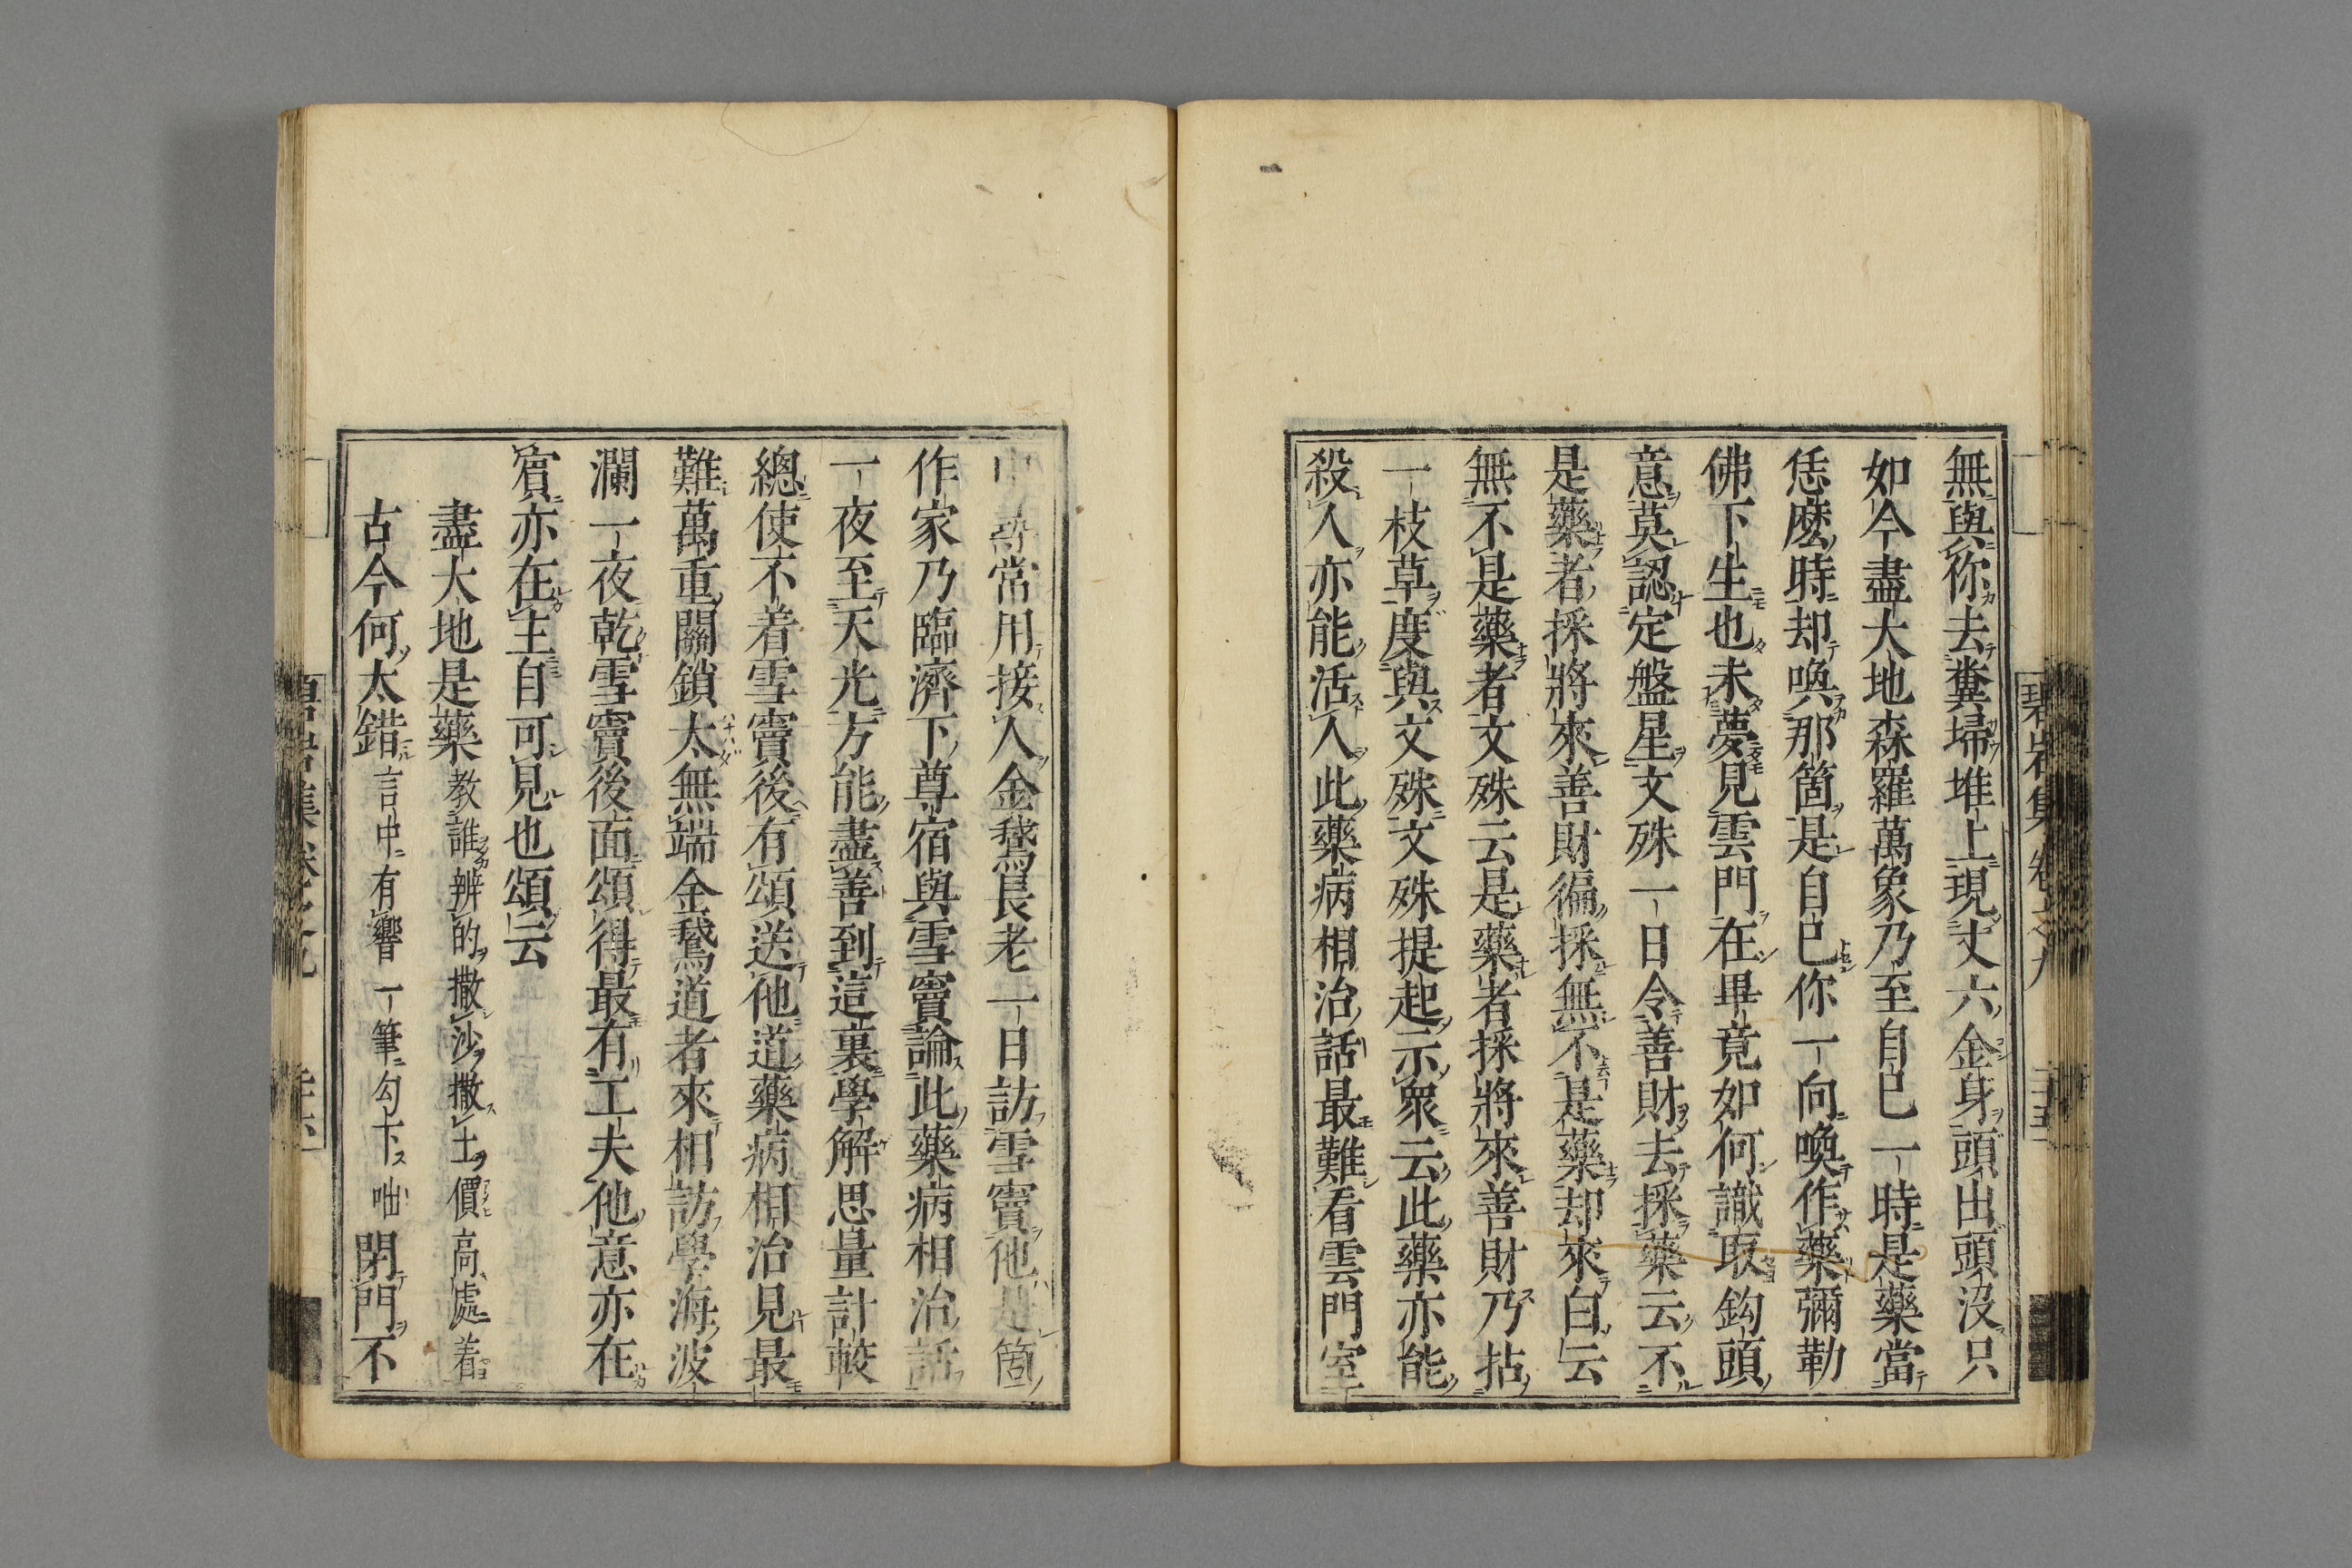 無與你去糞掃堆上現丈六金身頭出頭沒只
如今盡大地森羅萬象乃至自己一時是藥當
恁麽時却喚那箇是自己你一向喚作藥彌勒
佛下生也未夢見雲門在畢竟如何識取鈎頭
意莫認定盤星文殊一日令善財去採藥云不
是藥者採將來善財徧採無不是藥却來白云
無不是藥者文殊云是藥者採將來善財乃拈
一枝草度與文殊文殊提起示衆云此藥亦能
殺人亦能活人此藥病相治話最難看雲門室
中尋常用接人金鵞長老一日訪雪竇他是箇
作家乃臨濟下尊宿與雪竇論此藥病相治話
一夜至天光方能盡善到這裏學解思量計較
總使不着雪竇後有頌送他道藥病相治見最
難萬重關鎖太無端金鵞道者來相訪學海波
瀾一夜乾雪竇後面頌得最有工夫他意亦在
賓亦在主自可見也頌云
盡大地是藥教誰辨的撒沙撒土價高處着
古今何太錯言中有響一筆勾下咄閉門不
碧岩集卷之九